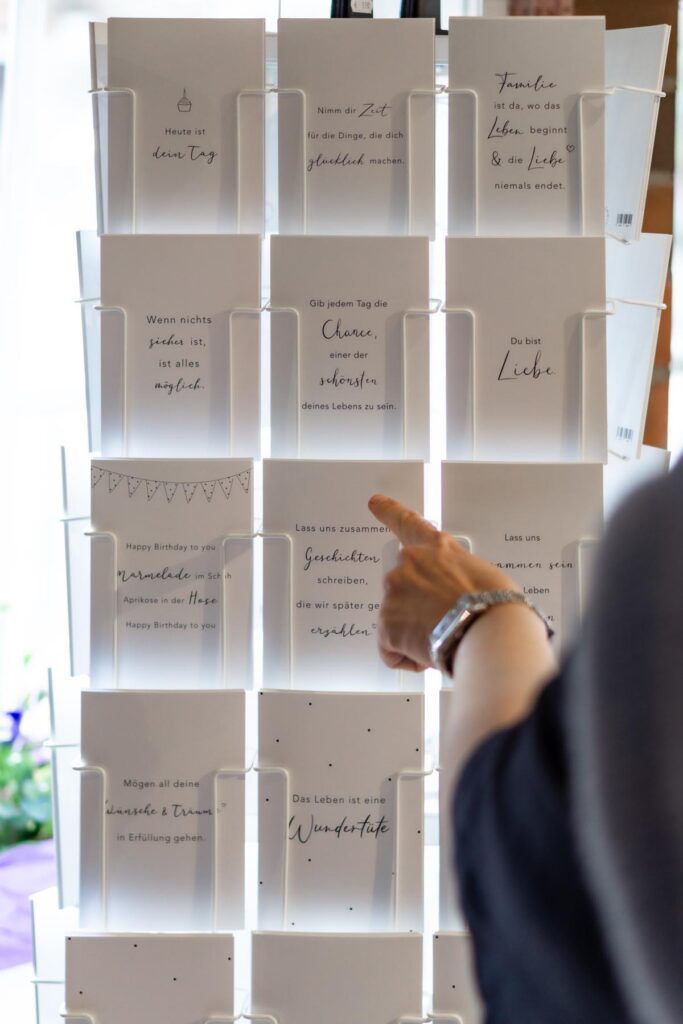 Heute ist
dein Tag
Nimm dir Zeit
für die Dinge, die dich
glücklich machen.
Familie
ist da, wo das
Leben beginnt
& die Liebe
niemals endet.
Wenn nichts
sicher ist,
ist alles
möglich.
Gib jedem Tag die
Chance,
einer der
schönsten
deines Lebens zu sein.
Du bist
Liebe.
Happy Birthday to you
Marmelade im Schuh
Aprikose in der Hose
Happy Birthday to you
Lass uns zusammen
Geschichten
schreiben,
die wir später
erzählen
Lass uns
sein
Leben
Mögen all deine
Wünsche & Träume
in Erfüllung gehen.
Das Leben ist eine
Wundertüte